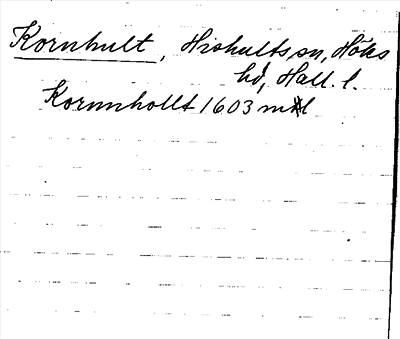 Kornhult, Hishults sn, Höks
hd, Hall. l.
Kornnhollt 1603 mtl